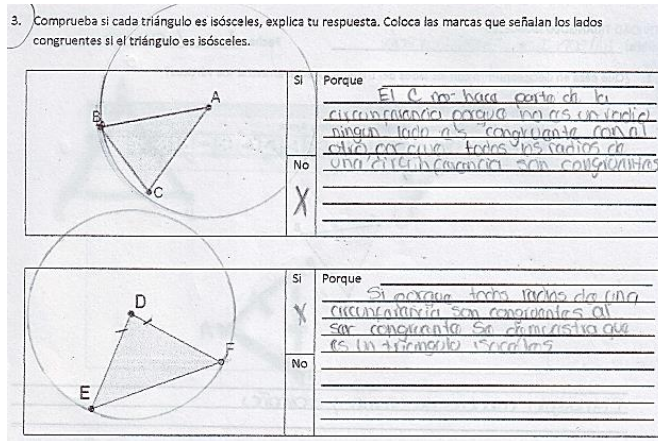 3. Comprueba si cada triángulo es isósceles, explica tu respuesta. Coloca las marcas que señalan los lados
congruentes si el triángulo es isósceles.
A
B
C
Si
Porque
El C no hace parte de la
circunferencia porque no es un radio
ningun lado es congruente con el
otro todos los radios de
una circunferencia son congruentes
No
X
D
F
E
Si
X
Porque
Si porque todos radios de una
circunferencia son congruentes al
ser congruente se demuestra que
es un triangulo isoceles
No